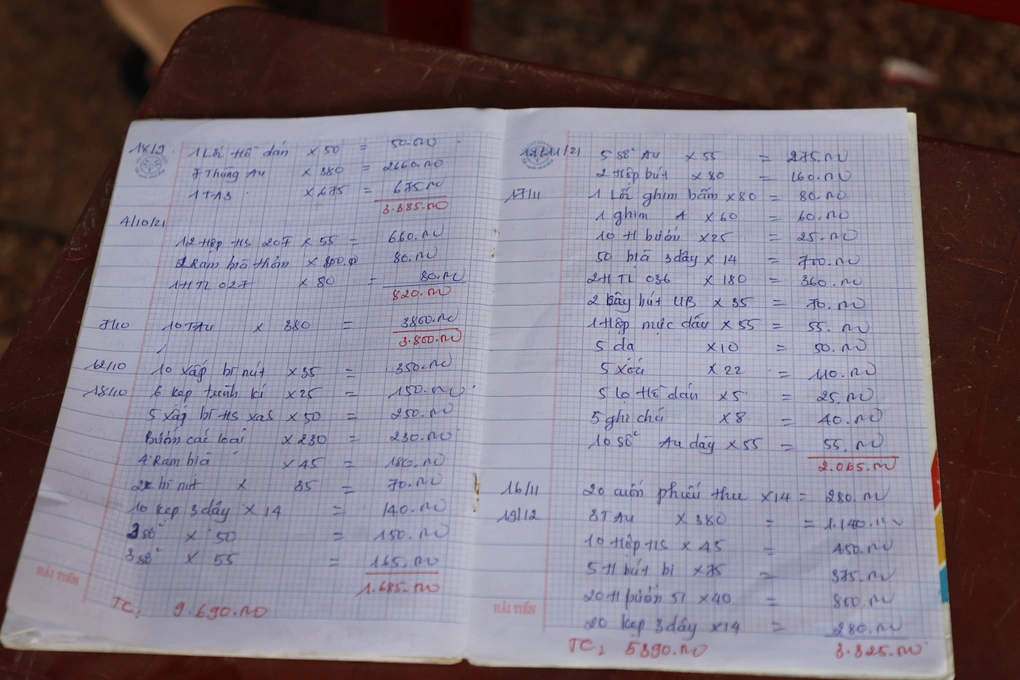 18/9 1 Lốc Hồ dán x 50 = 50.000
7 Thùng A4 x 380 = 2660.000
1 TA3 x 675 = 675.000
3.385.000
4/10/21
12 Hộp HS 207 x 55 = 660.000
2 Ram bìa thơm = 80.000
1 H TL 027 x 80 = 80.000
820.000
7/10 10 TA4 x 380 = 3800.000
3.800.000
12/10 10 xấp bì nút x 35 = 350.000
18/10 6 kẹp trình kí x 25 = 150.000
5 xấp bì HS x 50 = 250.000
Bướm các loại x 230 = 230.000
4 Ram bìa x 45 = 180.000
2 bì nút x 35 = 70.000
10 kẹp 3 dây x 14 = 140.000
3 sổ x 50 = 150.000
3 sổ x 55 = 165.000
1.685.000
HẢI TIẾN
TC: 9.690.000
11/21 5 sổ A4 x 55 = 275.000
2 Hộp bút x 80 = 160.000
17/11 1 Lốc ghim bấm x 80 = 80.000
1 ghim 4 x 60 = 60.000
10 H bướm x 25 = 25.000
50 bìa 3 dây x 14 = 700.000
2 H TL 036 x 180 = 360.000
2 cây bút UB x 35 = 70.000
1 Hộp mực dấu x 55 = 55.000
5 dạ x 10 = 50.000
5 xóa x 22 = 110.000
5 lọ Hồ dán x 5 = 25.000
5 ghi chú x 8 = 40.000
10 sổ A4 dày x 55 = 55.000
2.065.000
16/11 20 cuốn phiếu thu x 14 = 280.000
19/12 3 TA4 x 380 = = 1.140.000
10 Hộp HS x 45 = 450.000
5 H bút bi x 75 = 375.000
20 H bướm 51 x 40 = 800.000
20 kẹp 3 dây x 14 = 280.000
HẢI TIẾN
TC: 5390.000 3.325.000